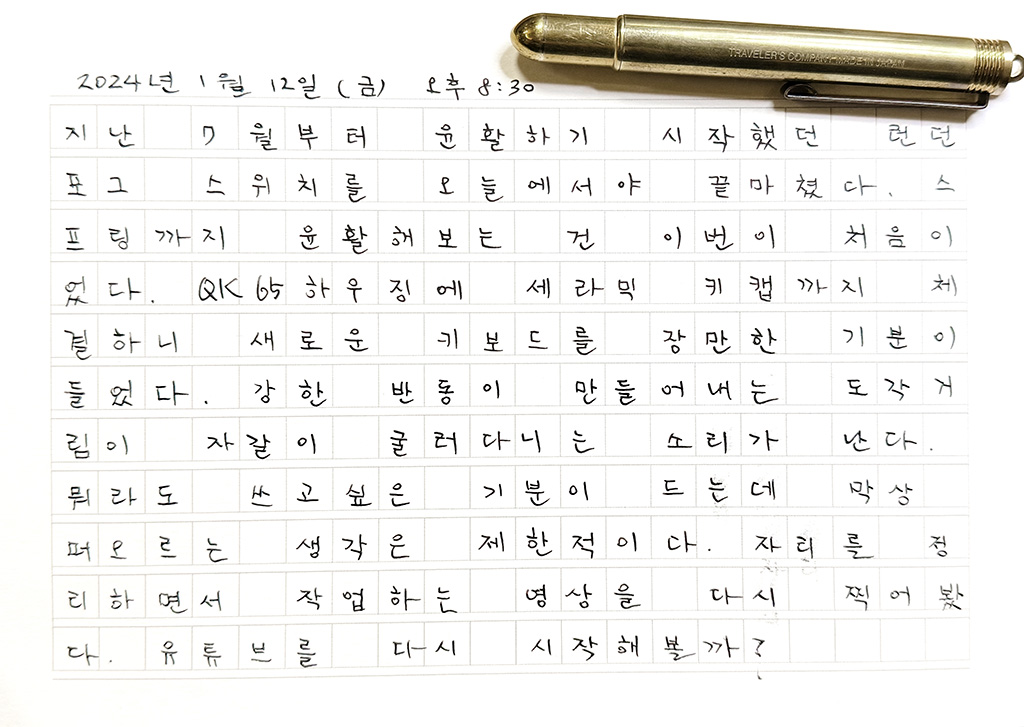 TRAVELER'S COMPANY MADE IN JAPAN
2024년 1월 12일 (금) 오후 8:30
지난 7월부터 윤활하기 시작했던 런던
포그 스위치를 오늘에서야 끝마쳤다. 스
프링까지 윤활해보는 건 이번이 처음이
었다. QK65 하우징에 세라믹 키캡까지 체
결하니 새로운 키보드를 장만한 기분이
들었다. 강한 반동이 만들어내는 도각거
림이 자갈이 굴러다니는 소리가 난다.
뭐라도 쓰고싶은 기분이 드는데 막상
떠오르는 생각은 제한적이다. 자리를 정
리하면서 작업하는 영상을 다시 찍어봤
다. 유튜브를 다시 시작해볼까?